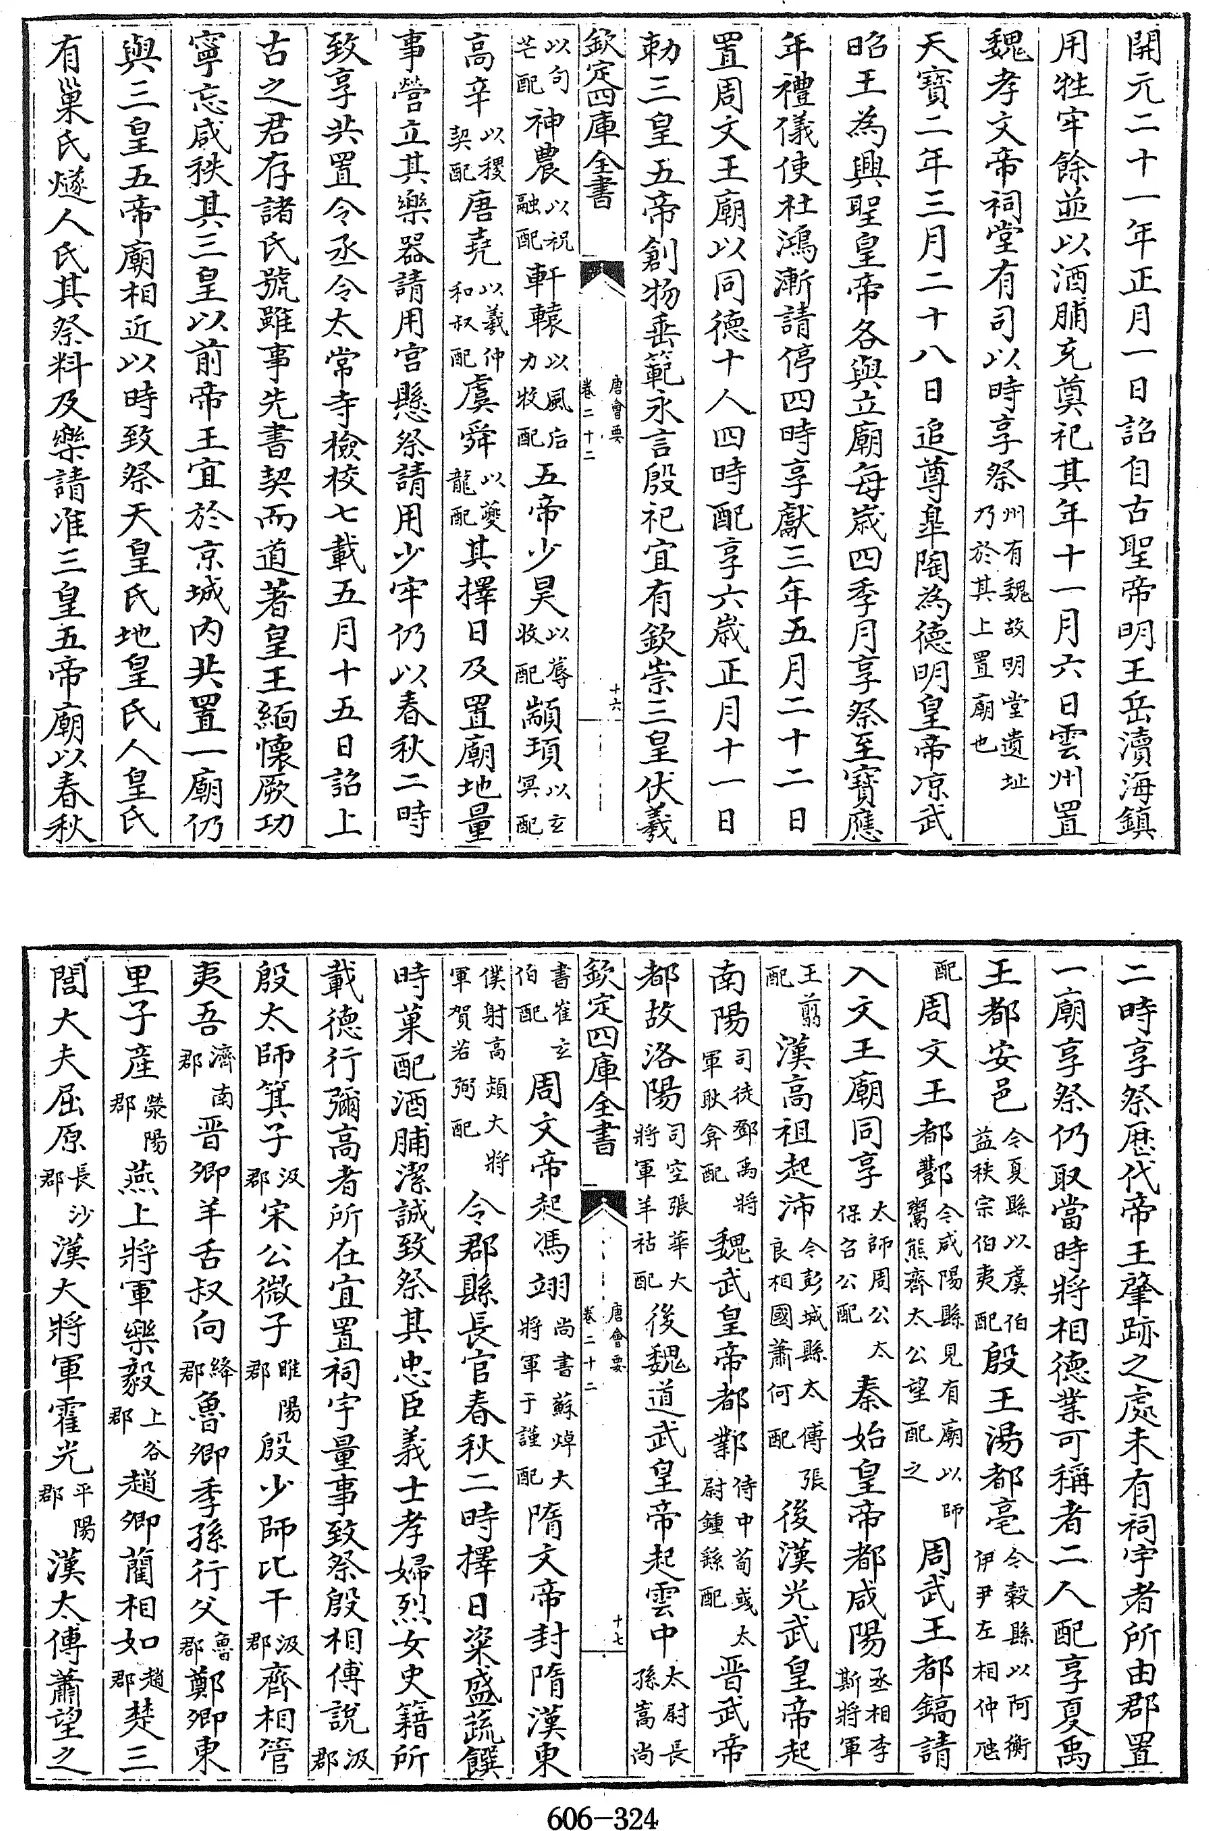 開元二十一年正月一日詔自古聖帝明王岳瀆海鎮
用牲牢餘並以酒脯充奠祀其年十一月六日雲州置
魏孝文帝祠堂有司以時享祭州有魏故明堂遺址乃於其上置廟也
天寶二年三月二十八日追尊臯陶為德明皇帝凉武
昭王為興聖皇帝各與立廟每歳四季月享祭至寶應
年禮儀使杜鴻漸請停四時享獻三年五月二十二日
置周文王廟以同德十人四時配享六歳正月十一日
勅三皇五帝創物垂範永言殷祀宜有欽崇三皇伏羲
欽定四庫全書 唐會要 卷二十二 十六
以句芒配神農以祝融配軒轅以風后力牧配五帝少昊以蓐收配顓頊以玄冥配
高辛以稷契配唐堯以羲仲和叔配虞舜以夔龍配其擇日及置廟地量
事營立其樂器請用宮懸祭請用少牢仍以春秋二時
致享共置令丞令太常寺檢校七載五月十五日詔上
古之君存諸氏號雖事先書契而道著皇王緬懷厥功
寧忘咸秩其三皇以前帝王宜於京城内共置一廟仍
與三皇五帝廟相近以時致祭天皇氏地皇氏人皇氏
有巢氏燧人氏其祭料及樂請准三皇五帝廟以春秋
二時享祭歴代帝王肇跡之處未有祠宇者所由郡置
一廟享祭仍取當時將相德業可稱者二人配享夏禹
王都安邑今夏縣以虞伯益秩宗伯夷配殷王湯都亳今榖縣以阿衡伊尹左相仲虺
配周文王都酆今咸陽縣見有廟以師鬻熊齊太公望配之周武王都鎬請
入文王廟同享太師周公太保召公配秦始皇帝都咸陽丞相李斯將軍
王翦配漢高祖起沛今彭城縣太傅張良相國蕭何配後漢光武皇帝起
南陽司徒鄧禹將軍耿弇配魏武皇帝都鄴侍中荀彧太尉鍾繇配晋武帝
都故洛陽司空張華大將軍羊祜配後魏道武皇帝起雲中太尉長孫嵩尚
欽定四庫全書 唐會要 卷二十二 十七
書崔玄伯配周文帝起馮翊尚書蘇焯大將軍于謹配隋文帝封隋漢東
僕射高熲大將軍賀若弼配令郡縣長官春秋二時擇日粢盛蔬饌
時菓配酒脯潔誠致祭其忠臣義士孝婦烈女史籍所
載德行彌高者所在宜置祠宇量事致祭殷相傅說汲郡
殷太師箕子汲郡宋公微子睢陽郡殷少師比干汲郡齊相管
夷吾濟南郡晋卿羊舌叔向絳郡魯卿季孫行父魯郡鄭卿東
里子產滎陽郡燕上將軍樂毅上谷郡趙卿藺相如趙郡楚三
閭大夫屈原長沙郡漢大將軍霍光平陽郡漢太傅蕭望之
606-324